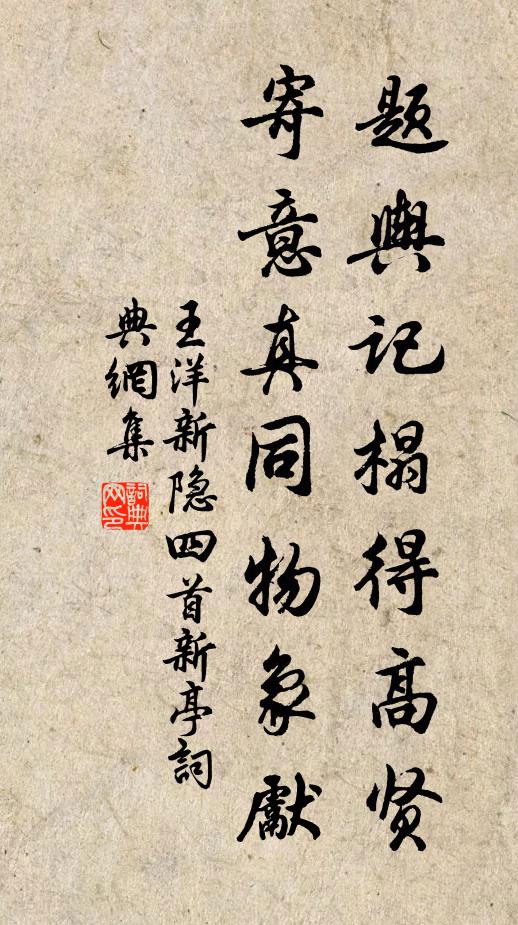 题舆记榻得高贤
寄意真同物象献
王洋新隐四首新亭詞
典網集
詞典网印